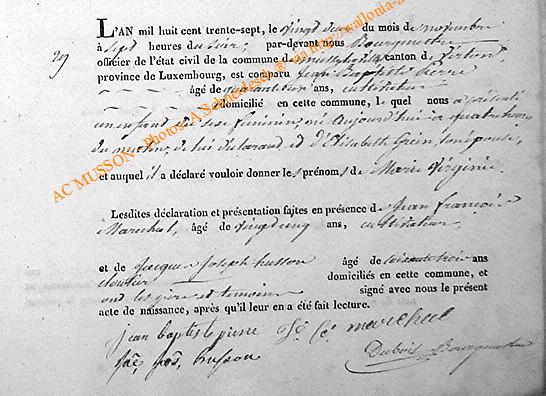 L'AN mil huit cent trente-sept, le vingt deux du mois de novembre
29
à sept heures du soir, par-devant nous Bourgmestre
officier de l'état civil de la commune de musson canton de Virton
province de Luxembourg, est comparu Jean Baptiste Pierre
âgé de quarante un ans, cultivateur
domicilié en cette commune, lequel nous a présenté
un enfant du sexe féminin, né Aujourd'hui à quatre heures
du matin, de lui déclarant et d'Elisabeth son épouse,
et auquel il a déclaré vouloir donner les prénoms de Marie Virginie.
Lesdites déclaration et présentation faites en présence de Jean François
Marechal, âgé de vingt cinq ans, cultivateur,
et de Jacques Joseph husson âgé de soixante trois ans
cloutier domiciliés en cette commune, et
ont les père et temoins signé avec nous le présent
acte de naissance, après qu'il leur en a été fait lecture.
jean baptiste pierre marechal
jos, husson
Dubois Bourgmestre
AC MUSSON - Photos: A Schneidesch via http://wallonia-a